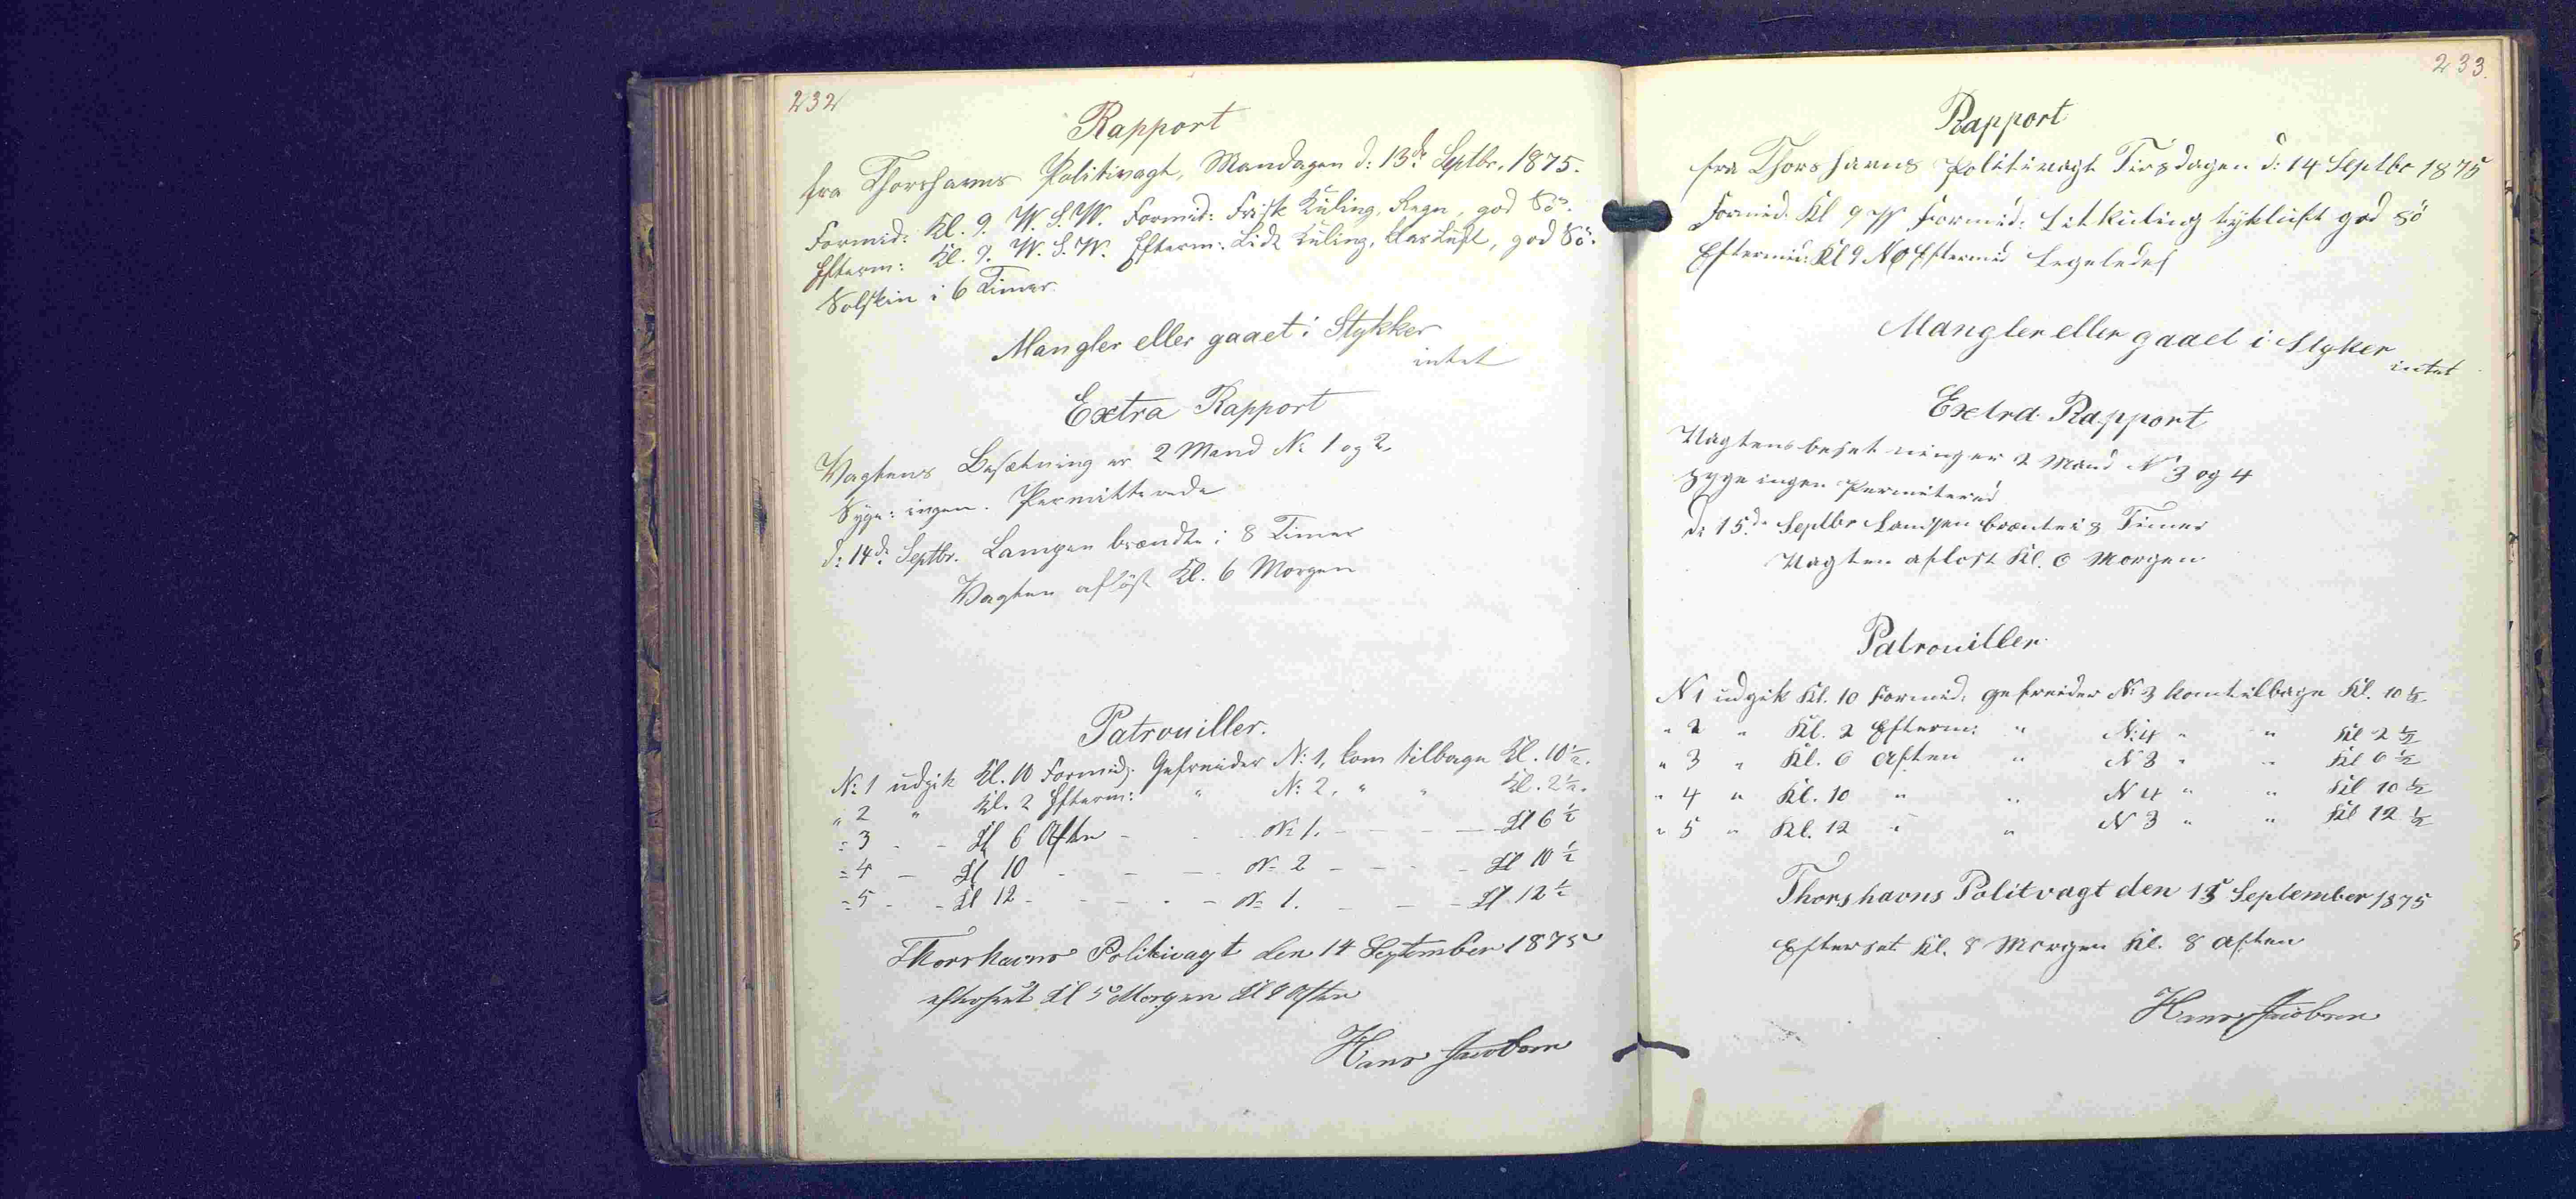 232
Rapport
fra Thorshavns Politivagt, Mandagen d: 13de Septbr. 1875.
Formid: Kl. 9. W. S. W. Formid: Frisk Kuling, Regn, god Sö.
Efterm: Kl. 9. W. S. W. Efterm: Lidt Kuling, klar Luft, god Sö.
Solskin i 6 Timer.
Mangler eller gaaet i Stykker
intet
Extra Rapport
Vagtens Besætning er 2 Mand No 1 og 2.
Syge: ingen. Permitterede
d: 14de Septbr. Lampen brændte i 8 Timer
Vagten aflöst Kl. 6 Morgen
Patrouiller.
No: 1 udgik Kl. 10 Formid: Gefreider N: 1, kom tilbage Kl. 10½.
" 2 " Kl. 2 Efterm: " N: 2, " " Kl. 2½.
" 3 - - Kl 6 Aften - - No 1. - - - Kl 6½
" 4 - Kl 10 - - - No 2 - - - Kl 10½
" 5 - - Kl 12 - - - - No 1. - - - Kl. 12½
Thorshavns Politivagt den 14 September 1875
efterseet Kl 5 Morgen Kl 8 Aften
Hans Jacobsen
233.
Rapport
fra Thorshavns Politivagt Tirsdagen d: 14 Septbr 1875
Formid. Kl 9 W Formid: Lit Kuling tykluft god sö
Eftermid: Kl 9 NO Eftermid Ligeledes
Mangler eller gaaet i Styker
intet
Extra Rapport
Vagtens besetning er 2 Mand No 3 og 4
syge ingen Permitered
d: 15de Septbr Lampen brænte i 8 Timer
Vagten aflost Kl. 6 Morgen
Patrouiller
N 1 udgik Kl. 10 Formid: gefreider N: 3 kom tilbage Kl. 10½
" 2 " Kl. 2 Efterm: " N: 4 " " Kl 2½
" 3 " Kl. 6 Aften " N 3 " " Kl 6½
" 4 " Kl. 10 " " N 4 " " Kl 10½
" 5 " Kl. 12 " " N 3 " " Kl 12½
Thorshavns Politvagt den 15 September 1875
Efterset Kl. 8 Morgen Kl. 8 Aften
Hans Jacobsen